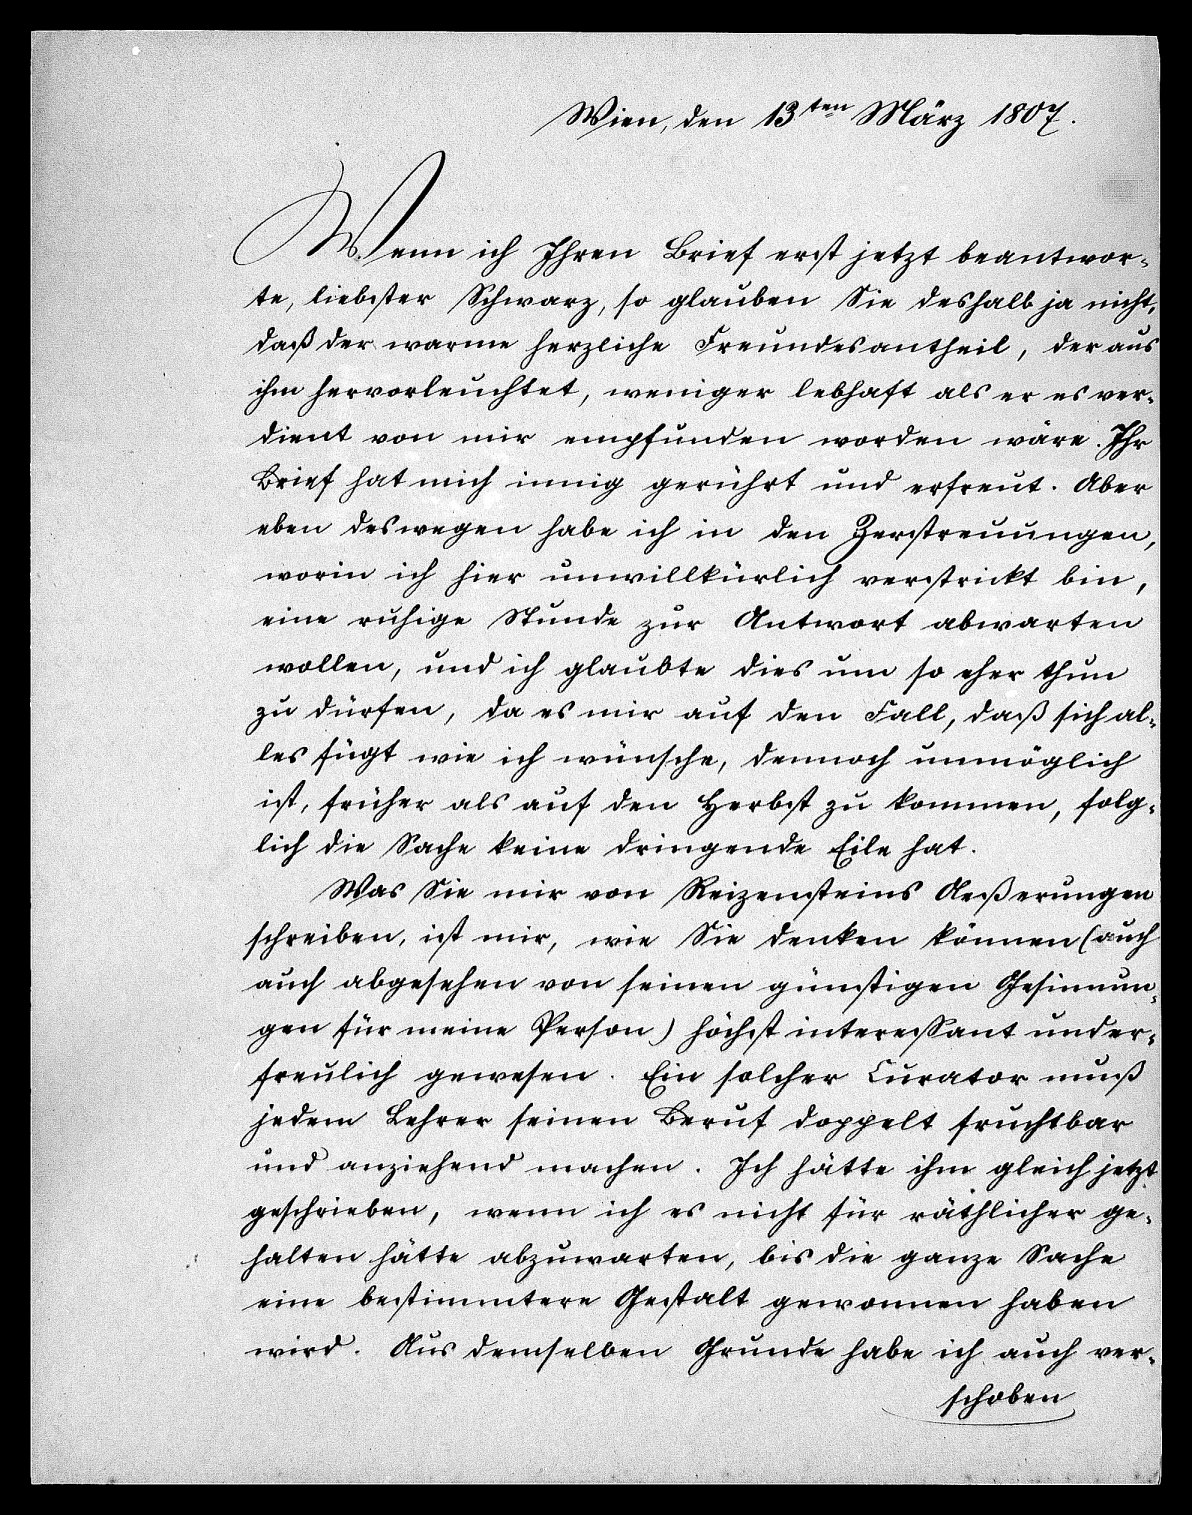 Wien, den 13ten März 1807.
Wenn ich Ihren Brief erst jetzt beantwor-
te, liebster Schwarz, so glauben Sie deshalb ja nicht,
daß der warme herzliche Freundesantheil, der aus
ihm hervorleuchtet, weniger lebhaft als er es ver-
dient von mir empfunden worden wäre. Ihr
Brief hat mich innig gerührt und erfreut. Aber
eben deswegen habe ich in den Zerstreuungen,
worin ich hier unwillkürlich verstrickt bin,
eine ruhige Stunde zur Antwort abwarten
wollen, und ich glaubte dies um so eher thun
zu dürfen, da es mir auf den Fall, daß sich al-
les fügt wie ich wünsche, dennoch unmöglich
ist, früher als auf den Herbst zu kommen, folg-
lich die Sache keine dringende Eile hat.
Was Sie mir von Reizensteins Aeßerungen
schreiben, ist mir, wie Sie denken können (auch
auch abgesehen von seinen günstigen Gesinnun-
gen für meine Person) höchst interessant und er-
freulich gewesen. Ein solcher Curator muß
jedem Lehrer seinen Beruf doppelt fruchtbar
und anziehend machen. Ich hätte ihm gleich jetzt
geschrieben, wenn ich es nicht für räthlicher ge-
halten hätte abzuwarten, bis die ganze Sache
eine bestimmtere Gestalt gewonnen haben
wird. Aus demselben Grunde habe ich auch ver-
schoben